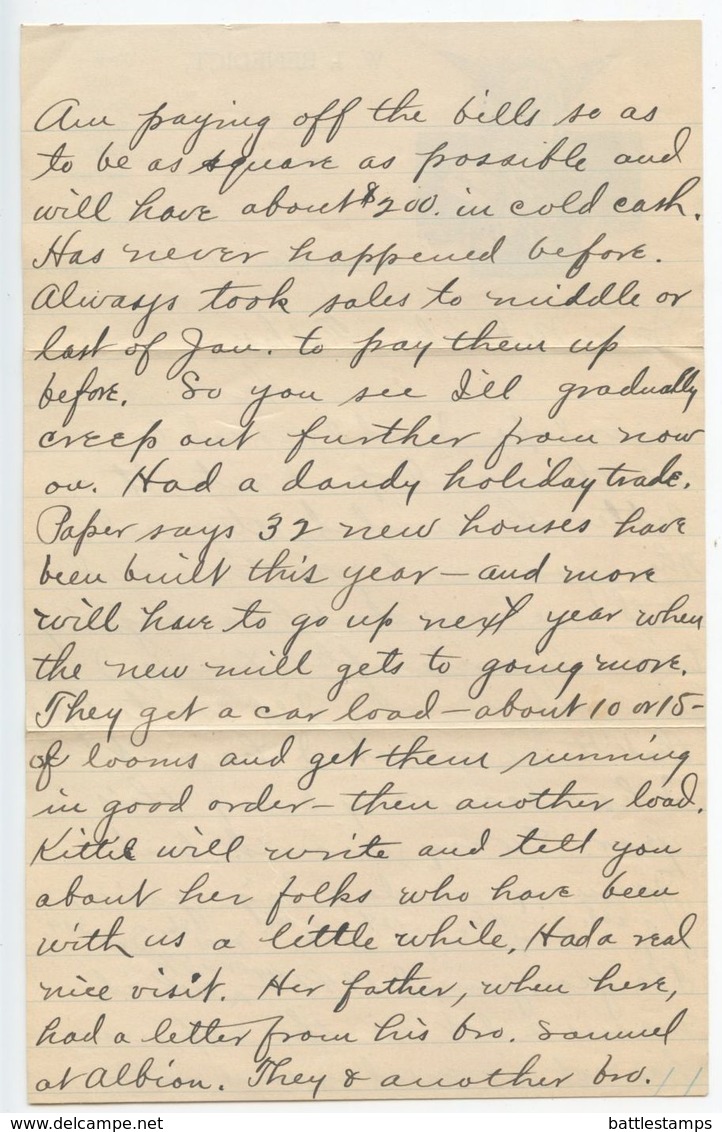 Am paying off the bills so as
to be as square as possible and
will have about $200. in cold cash.
Has never happened before.
Always took sales to middle or
last of Jan. to pay them up
before. So you see I'll gradually
creep out further from now
on. Had a dandy holiday trade.
Paper says 32 new houses have
been built this year — and more
will have to go up next year when
the new mill gets to going more.
They get a car load — about 10 or 15 —
of looms and get them running
in good order — then another load.
Kittie will write and tell you
about her folks who have been
with us a little while. Had a real
nice visit. Her father, when here,
had a letter from his bro. Samuel
at Albion. They & another bro.
battlestamps